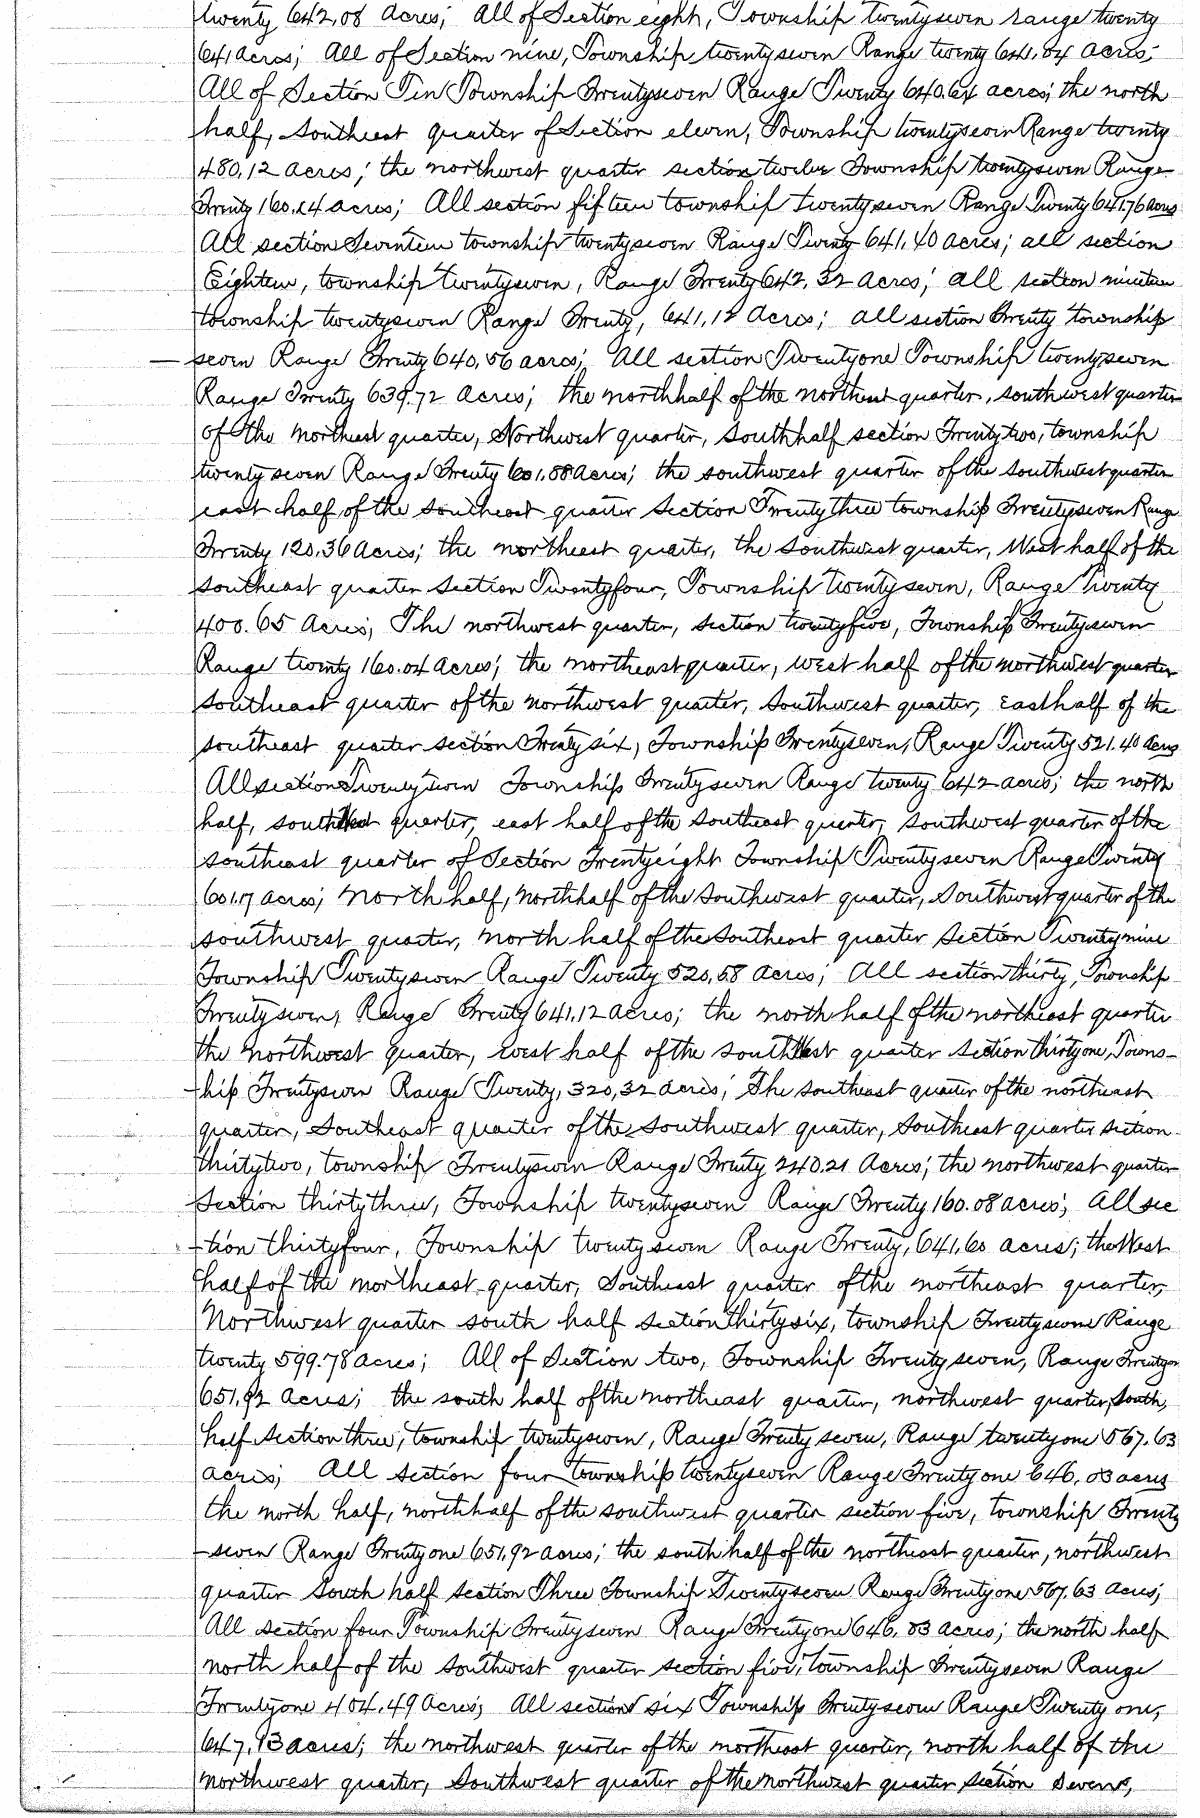 twenty 642,08 acres; all of Section eight, Township twentyseven range twenty
641 acres; All of Section nine, Township twentyseven Range twenty 641,04 acres;
All of Section Ten Township Twentyseven Range Twenty 640.64 acres; the north
half, southeast quarter of Section eleven, Township twentyseven Range twenty
480,12 acres; the northwest quarter section twelve Township twentyseven Range
Twenty 160.24 acres; All section fifteen township twentyseven Range Twenty 641.76 acres
All section Seventeen township twentyseven Range Twenty 641.40 acres; all section
Eighteen, township twentyseven, Range Twenty 642.32 acres; all section nineteen
township twentyseven Range Twenty, 641,12 acres; all section Twenty township
seven Range Twenty 640,56 acres; All section Twentyone Township twentyseven
Range Twenty 639.72 acres; the northhalf of the northeast quarter, southwest quarter
of the northeast quarter, Northwest quarter, southhalf section Twentytwo, township
twentyseven Range Twenty 601.88 acres; the southwest quarter of the southwest quarter
east half of the southeast quarter section Twentythree township Twentyseven Range
Twenty 120.36 acres; the northeast quarter, the southwest quarter, West half of the
southeast quarter section Twentyfour, Township twentyseven, Range Twenty
400.65 acres; The northwest quarter, section twentyfive, Township Twentyseven
Range twenty 160.04 acres; the northeast quarter, west half of the northwest quarter
southeast quarter of the northwest quarter, southwest quarter, easthalf of the
southeast quarter section Twentysix, Township Twentyseven, Range Twenty 521.40 acres
All section Twentyseven Township Twentyseven Range twenty 642 acres; the north
half, quarter, east half of the southeast quarter, southwest quarter of the
southeast quarter of Section Twentyeight Township Twentyseven Range Twenty
601.17 acres; north half, northhalf of the southwest quarter, Southwest quarter of the
southwest quarter, north half of the southeast quarter section Twentynine
Township Twentyseven Range Twenty 520,58 acres; All section thirty, Township
Twentyseven, Range Twenty 641,12 acres; the north half of the northeast quarter
the northwest quarter, west half of the quarter section thirtyone, Towns-
-hip Twentyseven Range Twenty, 320,32 acres; The southeast quarter of the northeast
quarter, southeast quarter of the southwest quarter, southeast quarter section
thirtytwo, township Twentyseven Range Twenty 240.21 acres; the northwest quarter
section thirtythree, Township twentyseven Range Twenty 160.08 acres; All sec
-tion thirtyfour, Township twentyseven Range Twenty, 641,60 acres; the West
half of the northeast quarter, Southeast quarter of the northeast quarter,
Northwest quarter south half section thirtysix, township Twentyseven Range
twenty 599.78 acres; All of Section two, Township Twentyseven, Range Twentyone
651,92 acres; the south half of the northeast quarter, northwest quarter, South,
half section three, township twentyseven, Range Twentyseven, Range twentyone 567.63
acres; All section four township twentyseven Range Twentyone 646,03 acres
the north half, northhalf of the southwest quarter section five, township Twenty
-seven Range Twentyone 651,92 acres; the south half of the northeast quarter, northwest
quarter South half section Three Township Twentyseven Range Twentyone 567,63 acres;
All section four Township Twentyseven Range Twentyone 646,03 acres; the north half
north half of the southwest quarter section five, township Twentyseven Range
Twentyone 404.49 acres; All section six Township Twentyseven Range Twentyone,
647,13 acres; the northwest quarter of the northeast quarter, north half of the
northwest quarter, southwest quarter of the northwest quarter section Seven,